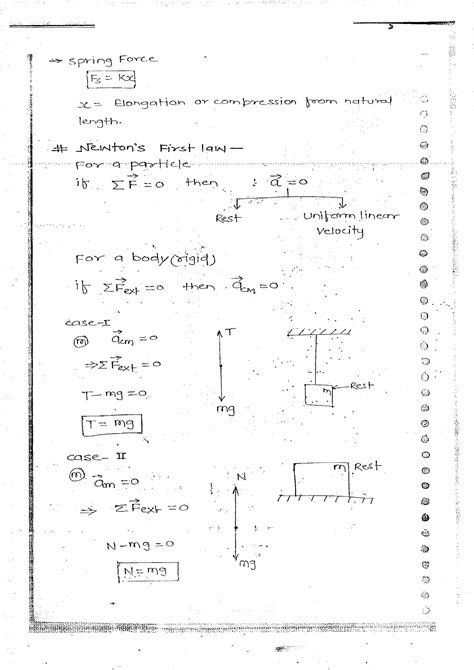 → Spring Force
Fs = Kx
x = Elongation or compression from natural
length.
# Newton's First law —
For a particle
if ΣF⃗ = 0 then : a⃗ = 0
Rest
Uniform linear
Velocity
For a body (rigid)
if ΣF⃗ext = 0 then a⃗cm = 0
case-I
(m) a⃗cm = 0
⇒ ΣF⃗ext = 0
T - mg = 0
T = mg
T
mg
m
Rest
case- II
(m) a⃗m = 0
⇒ ΣF⃗ext = 0
N - mg = 0
N = mg
N
mg
m
Rest